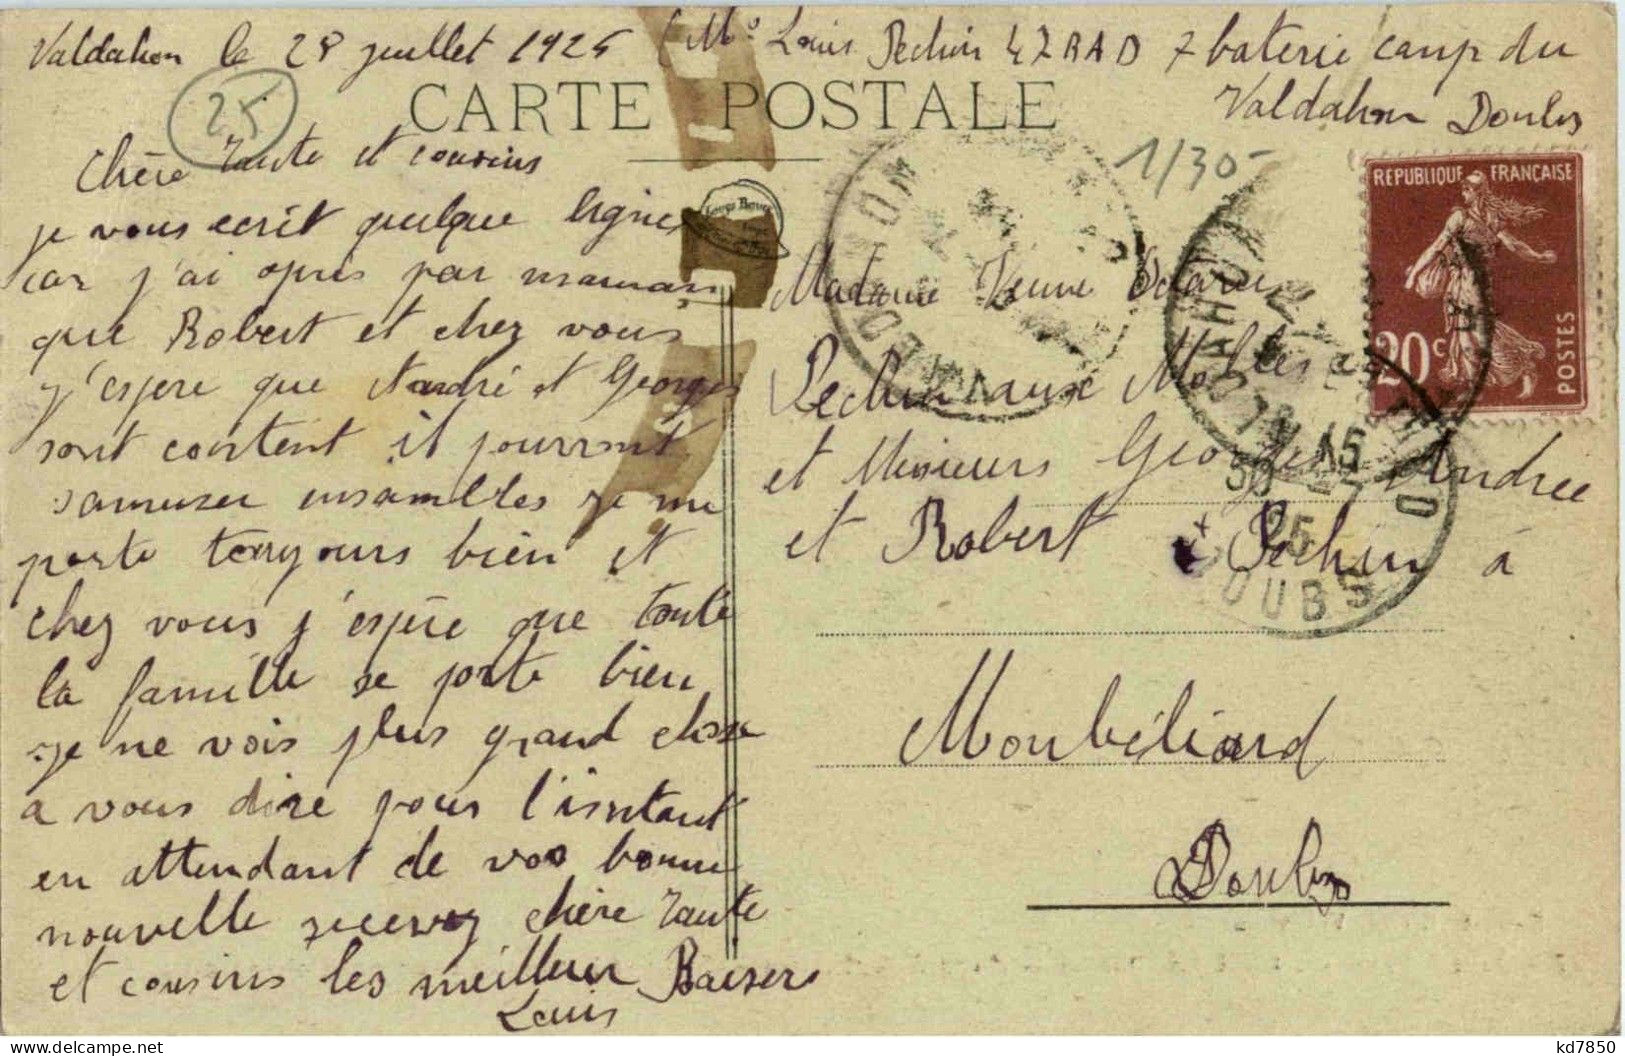 Valdahon le 28 juillet 1925 (Mr Louis Pechin 47 RAD 7 baterie camp du
Valdahon Doubs
25
CARTE POSTALE
1/30
REPUBLIQUE FRANÇAISE
20c
POSTES
Chère Tante et cousins
je vous ecrit quelque lignes
car j'ai apris par maman
que Robert et chez vous
j'espere que Andre et Georges
sont content il pourront
samuser ensambles je me
porte toujours bien et
chez vous j'espère que toute
la famille se porte bien
je ne vois plus grand chose
a vous dire pour l'instant
en attendant de vos bonne
nouvelle recevez chère Tante
et cousins les meilleur Baisers
Louis
Madame Veuve
Pechin aux
et Messieurs Georges Andree
et Robert Pechin à
Monbéliard
Doubs
15
30 -7
25
DOUBS
kd7850